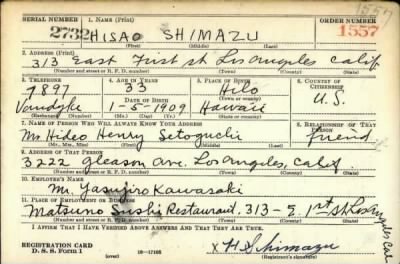 1557
SERIAL NUMBER 1. NAME (Print) ORDER NUMBER
2732 HISAO SHIMAZU 1557
(First) (Middle) (Last)
2. ADDRESS (Print)
313 East First st Los Angeles Calif
(Number and street or R. F. D. number) (Town) (County) (State)
3. TELEPHONE 4. AGE IN YEARS 5. PLACE OF BIRTH 6. COUNTRY OF CITIZENSHIP
7897 33 Hilo
DATE OF BIRTH (Town or county) U.S.
Vandyke 1-5-1909 Hawaii
(Exchange) (Number) (Mo.) (Day) (Yr.) (State or country)
7. NAME OF PERSON WHO WILL ALWAYS KNOW YOUR ADDRESS 8. RELATIONSHIP OF THAT PERSON
Mr. Hideo Henry Setoguchi friend
(Mr., Mrs., Miss) (First) (Middle) (Last)
9. ADDRESS OF THAT PERSON
3222 Gleason ave. Los Angeles, Calif
(Number and street or R. F. D. number) (Town) (County) (State)
10. EMPLOYER'S NAME
Mr. Yasujiro Kawasaki
11. PLACE OF EMPLOYMENT OR BUSINESS
Matsuno Sushi Restaurant, 313-E 1st st Los Angeles Cal
(Number and street or R. F. D. number) (Town) (County) (State)
I AFFIRM THAT I HAVE VERIFIED ABOVE ANSWERS AND THAT THEY ARE TRUE.
REGISTRATION CARD
D. S. S. Form 1 16-17105 x H Shimazu
(Registrant's signature)